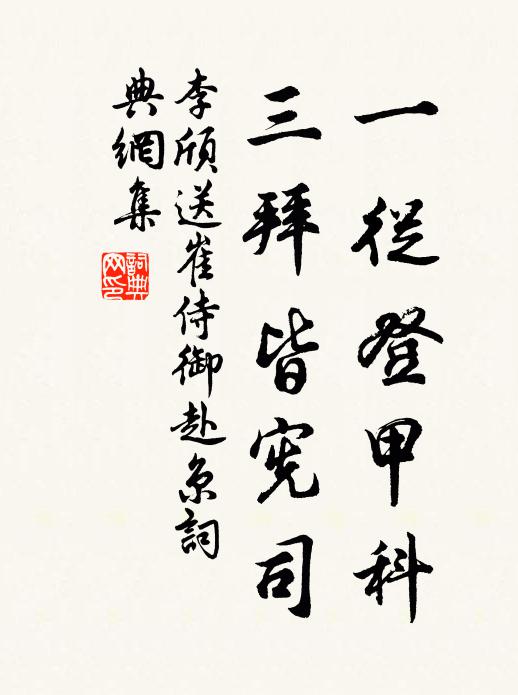 一從登甲科
三拜皆宪司
李頎送崔侍御赴京詞
典網集
詞典网印